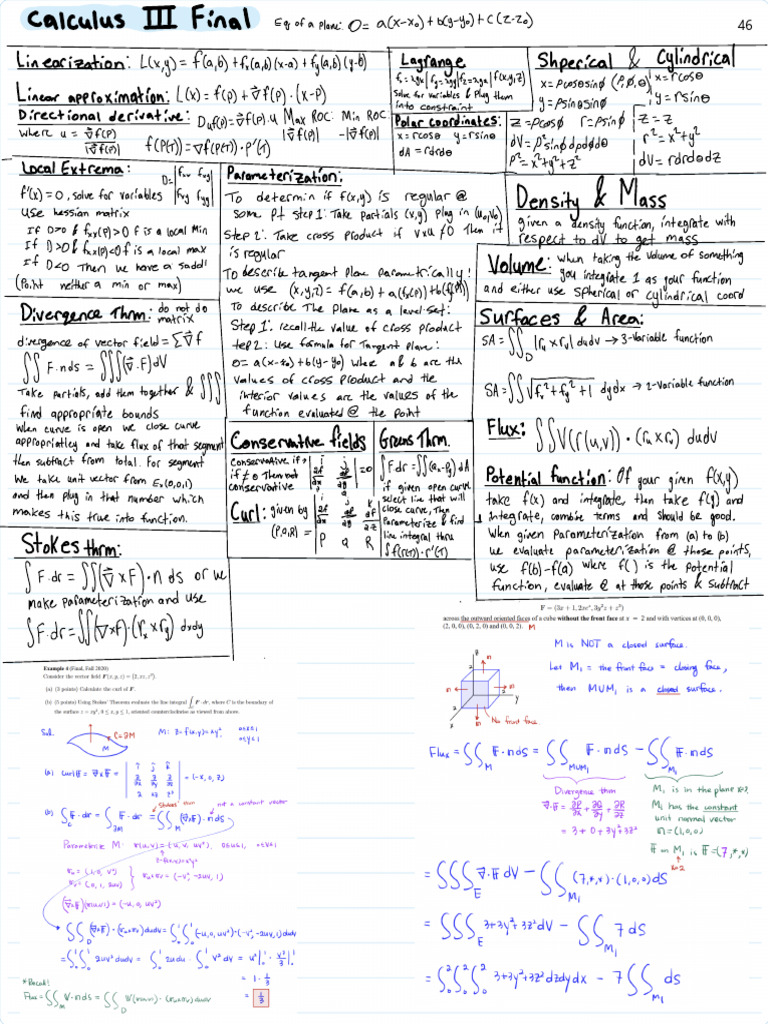 Calculus III Final
Eq of a plane: 0 = a(x-x₀) + b(y-y₀) + c(z-z₀)
46
Linearization: L(x,y) = f(a,b) + fₓ(a,b)(x-a) + f_y(a,b)(y-b)
Linear approximation: L(x) = f(p) + ∇f(p)·(x-p)
Directional derivative: D_u f(p) = ∇f(p)·u Max ROC: Min ROC:
where u = ∇f(p)/|∇f(p)| |∇f(p)| -|∇f(p)|
f'(P(T)) = ∇f(P(T))·P'(T)
Lagrange
Solve for variables & Plug them
into constraint
Polar coordinates:
x = rcosθ y = rsinθ
dA = rdrdθ
Shperical & Cylindrical
x = ρcosθsinφ (ρ,θ,φ) x = rcosθ
y = ρsinθsinφ y = rsinθ
z = ρcosφ r = ρsinφ z = z
dV = ρ²sinφ dρdφdθ r² = x²+y²
ρ² = x²+y²+z² dV = rdrdθdz
Local Extrema:
D = |fxx fxy|
|fxy fyy|
f'(x) = 0, solve for variables
Use hessian matrix
If D>0 & fxx(P)>0 f is a local Min
If D>0 & fxx(P)<0 f is a local max
If D<0 Then we have a saddl
(Point neither a min or max)
Parameterization:
To determin if f(x,y) is regular @
some pt step 1: Take partials (x,y) plug in (u₀,v₀)
Step 2: Take cross product if V×U ≠ 0 Then it
is regular
To describe tangent Plane parametrically:
we use (x,y,z) = f(a,b) + a(fᵤ(P)) + b(fᵥ(P))
To describe The Plane as a level-set:
Step 1: recall the value of cross product
tep 2: Use formula for Tangent plane:
0 = a(x-x₀) + b(y-y₀) wher a & b are the
values of cross Product and the
interior values are the values of the
function evaluated @ the point
Density & Mass
given a density function, integrate with
respect to dV to get mass
Volume: when taking the volume of something
you integrate 1 as your function
and either use Spherical or Cylindrical coord
Surfaces & Area:
SA = ∬_D |rᵤ×rᵥ| dudv → 3-Variable function
SA = ∬ √(fₓ²+f_y²+1) dydx → 2-Variable function
Flux: ∬ V(r(u,v))·(rᵤ×rᵥ) dudv
Divergence Thrm: do not do
matrix
divergence of vector field = Σ∇f
∬ F·nds = ∭(∇·F)dV
Take partials, add them together & ∭
find appropriate bounds
When curve is open we close curve
appropriatley and take flux of that segment
then subtract from total. For segment
we take unit vector from Ex.(0,0,1)
and then plug in that number which
makes this true into function.
Conservative fields
Conservative if →
if ≠ 0 Then not
conservative
= 0
Curl: given by
(P,Q,R) =
i j k
P Q R
Greens Thrm.
∫F·dr = ∬(Qₓ-P_y)dA
if given open curve
select line that will
close curve, Then
Parameterize & find
line integral thru
∫f(r(T))·r'(T)
Potential function: Of your given F(x,y)
take f(x) and integrate, then take f(y) and
integrate, combine terms and should be good.
When given Parameterization from (a) to (b)
we evaluate parameterization @ those points,
use f(b)-f(a) where f() is the potential
function, evaluate @ at those points & subtract
Stokes thrm:
∫F·dr = ∬(∇×F)·n ds or we
make Parameterization and use
∫F·dr = ∬(∇×F)·(rₓ×r_y) dxdy
Example 4 (Final, Fall 2020)
Consider the vector field F(x, y, z) = [2, xz, z²].
(a) (3 points) Calculate the curl of F.
(b) (5 points) Using Stokes' Theorem evaluate the line integral ∫ F · dr, where C is the boundary of
the surface z = xy², 0 ≤ x, y ≤ 1, oriented counterclockwise as viewed from above.
Sol. C=∂M M: z = f(x,y) = xy² 0≤x≤1
M 0≤y≤1
(a) Curl F = ∇×F = = (-x, 0, z)
Stokes' thm not a constant vector
(b) ∫_C F·dr = ∫_∂M F·dr = ∬_M (∇×F)·n dS
Parametrize M: r(u,v) = (u, v, uv²), 0≤u≤1, 0≤v≤1
z=f(x,y)=xy²
rᵤ = (1, 0, v²)
rᵥ = (0, 1, 2uv)
rᵤ×rᵥ = (-v², -2uv, 1)
(∇×F)(r(u,v)) = (-u, 0, uv²)
∬_D (∇×F)·(rᵤ×rᵥ)dudv = ∫₀¹∫₀¹ (-u,0,uv²)·(-v²,-2uv,1)dudv
= ∫₀¹∫₀¹ 2uv² dudv = ∫₀¹ 2u du · ∫₀¹ v² dv = u²|₀¹ · v³/3|₀¹
= 1 · 1/3
= 1/3
*Recall
Flux = ∬_M V·n dS = ∬_D V(r(u,v))·(rᵤ×rᵥ) dudv
F = (3x + 1, 2xeᶻ, 3y²z + z³)
across the outward oriented faces of a cube without the front face at x = 2 and with vertices at (0, 0, 0),
(2, 0, 0), (0, 2, 0) and (0, 0, 2). M
M is NOT a closed surface.
Let M₁ = the front face = closing face,
then M∪M₁ is a closed surface.
No front face
Flux = ∬_M F·n dS = ∬_M∪M₁ F·n dS - ∬_M₁ F·n dS
Divergence thm
∇·F = ∂P/∂x + ∂Q/∂y + ∂R/∂z
= 3+0+3y²+3z²
M₁ is in the plane x=2
M₁ has the constant
unit normal vector
n = (1,0,0)
F on M₁ is F = (7,*,*)
x=2
= ∭_E ∇·F dV - ∬_M₁ (7,*,*)·(1,0,0)dS
= ∭_E 3+3y²+3z² dV - ∬_M₁ 7 dS
= ∫₀²∫₀²∫₀² 3+3y²+3z² dzdydx - 7∬_M₁ dS